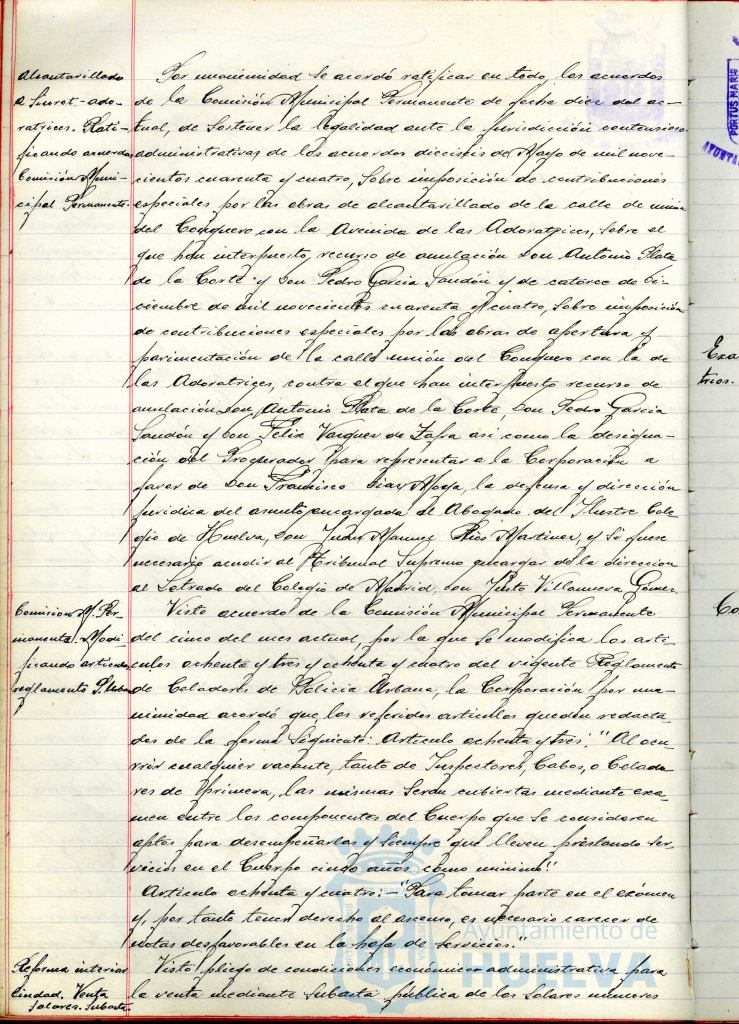 Alcantarillado
a Sinret.-ado-
ratrices. Rati-
ficando acuerdo
Comisión Muni-
cipal Permanente
Por unanimidad se acordó ratificar en todo, los acuerdos
de la Comisión Municipal Permanente de fecha diez del ac-
tual, de sostener la legalidad ante la jurisdicción contencioso
administrativas de los acuerdos dieciseis de Mayo de mil nove-
cientos cuarenta y cuatro, sobre imposición de contribuciones
especiales por las obras de alcantarillado de la calle de unión
del Conquero con la Avenida de las Adoratrices, sobre el
que han interpuesto, recurso de anulación Don Antonio Plata
de la Corte y Don Pedro Garcia Sandón y de catorce de Di-
ciembre de mil novecientos cuarenta y cuatro, sobre imposición
de contribuciones especiales por las obras de apertura y
pavimentación de la calle unión del Conquero con la de
las Adoratrices, contra el que han interpuesto recurso de
anulación Don, Antonio Plata de la Corte, Don Pedro Garcia
Sandón y Don Felix Vazquez de Zafra asi como la designa-
ción del Procurador para representar a la Corporación a
favor de Don Francisco Diaz Moya, la defensa y dirección
juridica del asunto encargada al Abogado del Ilustre Cole
gio de Huelva, Don Juan Manuel Rios Martinez, y si fuese
necesario acudir al Tribunal Supremo encargar de la direccion
al Letrado del Colegio de Madrid, Don Justo Villanueva Gomez.
Comision M. Per-
manente. Modi-
ficando articulos
reglamento P. Urbana
Visto acuerdo de la Comisión Municipal Permanente
del cinco del mes actual, por la que se modifica los arti-
culos ochenta y tres y ochenta y cuatro del vigente Reglamento
de Celadores de Policia Urbana, la Corporación por una-
nimidad acordó que los referidos articulos queden redacta-
dos de la forma siguiente: Articulo ochenta y tres: "Al ocu-
rrir cualquier vacante, tanto de Inspectores, Cabos, o Celado
res de primera, las mismas serán cubiertas mediante exa-
men entre los componentes del Cuerpo que se consideren
aptos para desempeñarlas y siempre que lleven prestando ser-
vicios en el Cuerpo cinco años como minimo."
Articulo ochenta y cuatro:- "Para tomar parte en el exámen
y, por tanto tener derecho al ascenso, es necesario carecer de
notas desfavorables en la hoja de servicios."
Reforma interior
Ciudad. Venta
Solares. Subasta
Visto pliego de condiciones económico administrativa para
la venta mediante subasta pública de los solares numeros
Exa
trios.
Co
PORTUS MARIS
AYUNTA
Ayuntamiento de
HUELVA